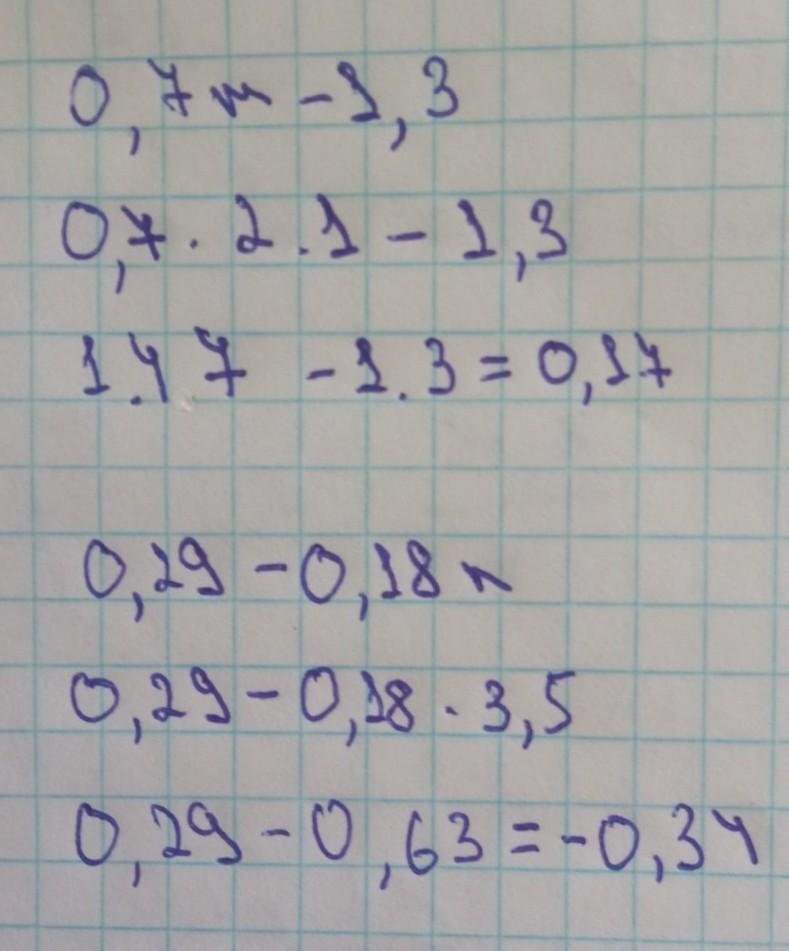 0,7m - 1,3
0,7 · 2.1 - 1,3
1.47 - 1.3 = 0,17
0,29 - 0,18n
0,29 - 0,18 · 3,5
0,29 - 0,63 = -0,34